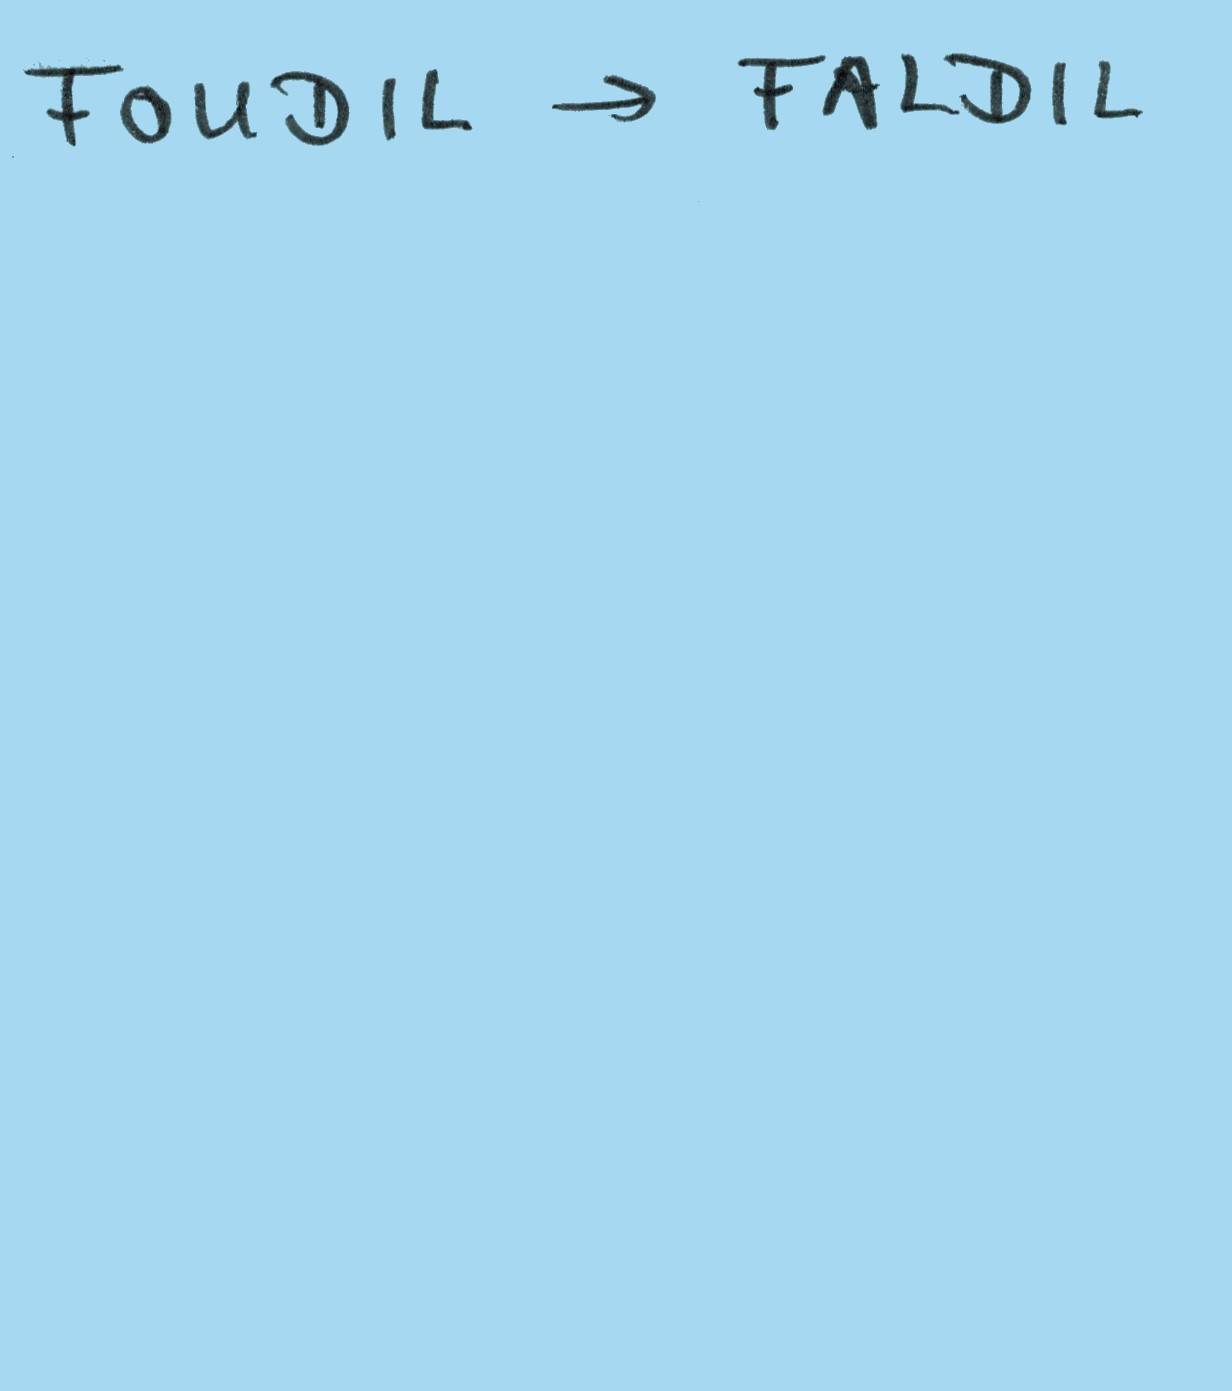 FOUDIL → FALDIL